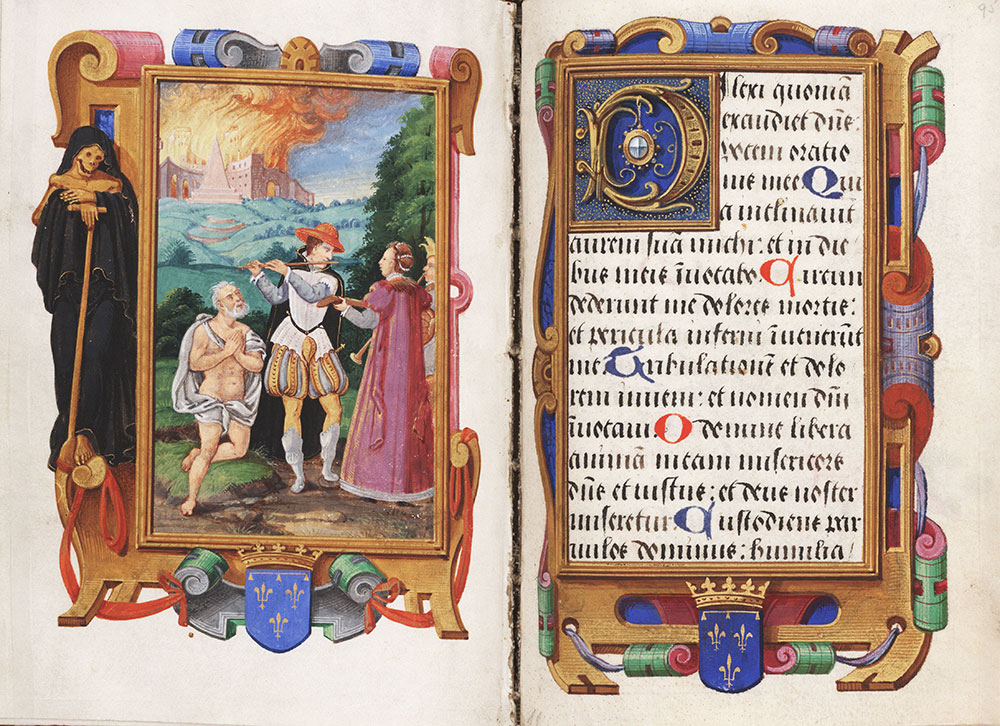 Dilexi quoniā
exaudiet dn̄s
vocem oratio
nis mee Qui
a inclinavit
aurem suā michi: et in die
bus meis īvocabo Circum
dederunt me dolores mortis:
et pericula inferni īvenerūt
me Tribulationē et dolo
rem inveni: et nomen dn̄i
īvocavi O domine libera
animā meam misericors
dn̄s et iustus: et deus noster
miseretur Custodiens par
vulos dominus: humilia